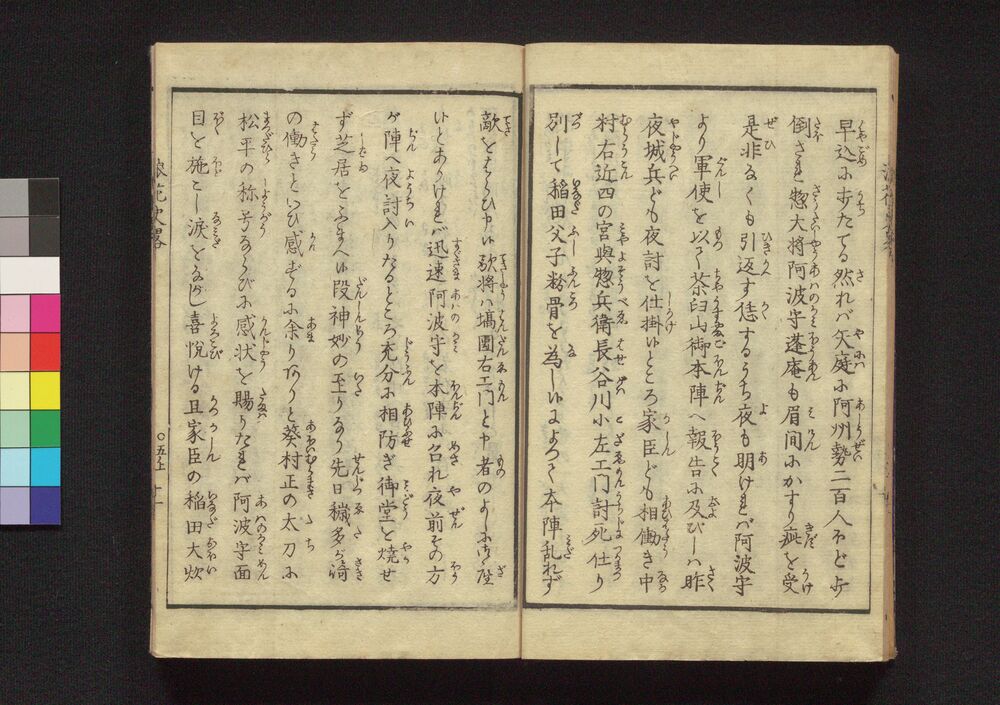 早込に歩たてる然れバ矢庭に阿州勢二百人ほど歩
倒され惣大将阿波守蓬庵も眉間にかすり疵を受
是非なくも引返す偖するうち夜も明けれバ阿波守
より軍使を以て茶臼山御本陣へ報告に及びしハ昨
夜城兵ども夜討を仕掛いところ家臣ども相働き中
村右近四の宮與惣兵衛長谷川小左エ門討死仕り
別して稲田父子粉骨を為しいによつて本陣乱れず
敵をはらひ申い敵将ハ塙團右エ門と申者のよしに御座
いとありけれバ迅速阿波守を本陣に召れ夜前その方
が陣へ夜討入りたるところ充分に相防ぎ御堂を焼せ
ず芝居をふまへい段神妙の至りなり先日穢多が崎
の働きといひ感ずるに余りありと葵村正の太刀に
松平の称号ならびに感状を賜りたれバ阿波守面
目を施こし涙をながし喜悦ける且家臣の稲田大炊